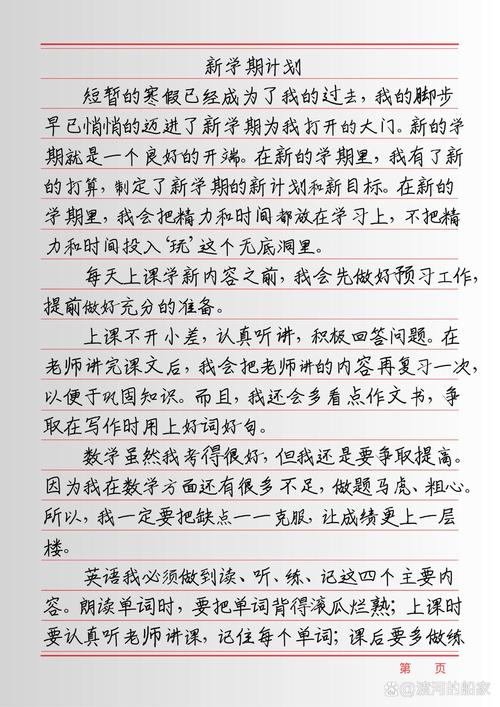 新学期计划
短暂的寒假已经成为了我的过去，我的脚步
早已悄悄的迈进了新学期为我打开的大门。新的学
期就是一个良好的开端。在新的学期里，我有了新
的打算，制定了新学期的新计划和新目标。在新的
学期里，我会把精力和时间都放在学习上，不把精
力和时间投入‘玩’这个无底洞里。
每天上课学新内容之前，我会先做好预习工作，
提前做好充分的准备。
上课不开小差，认真听讲，积极回答问题。在
老师讲完课文后，我会把老师讲的内容再复习一次，
以便于巩固知识。而且，我还会多看点作文书，争
取在写作时用上好词好句。
数学虽然我考得很好，但我还是要争取提高。
因为我在数学方面还有很多不足，做题马虎、粗心。
所以，我一定要把缺点一一克服，让成绩更上一层
楼。
英语我必须做到读、听、练、记这四个主要内
容。朗读单词时，要把单词背得滚瓜烂熟；上课时
要认真听老师讲课，记住每个单词；课后要多做练
第 页
渡河的船家